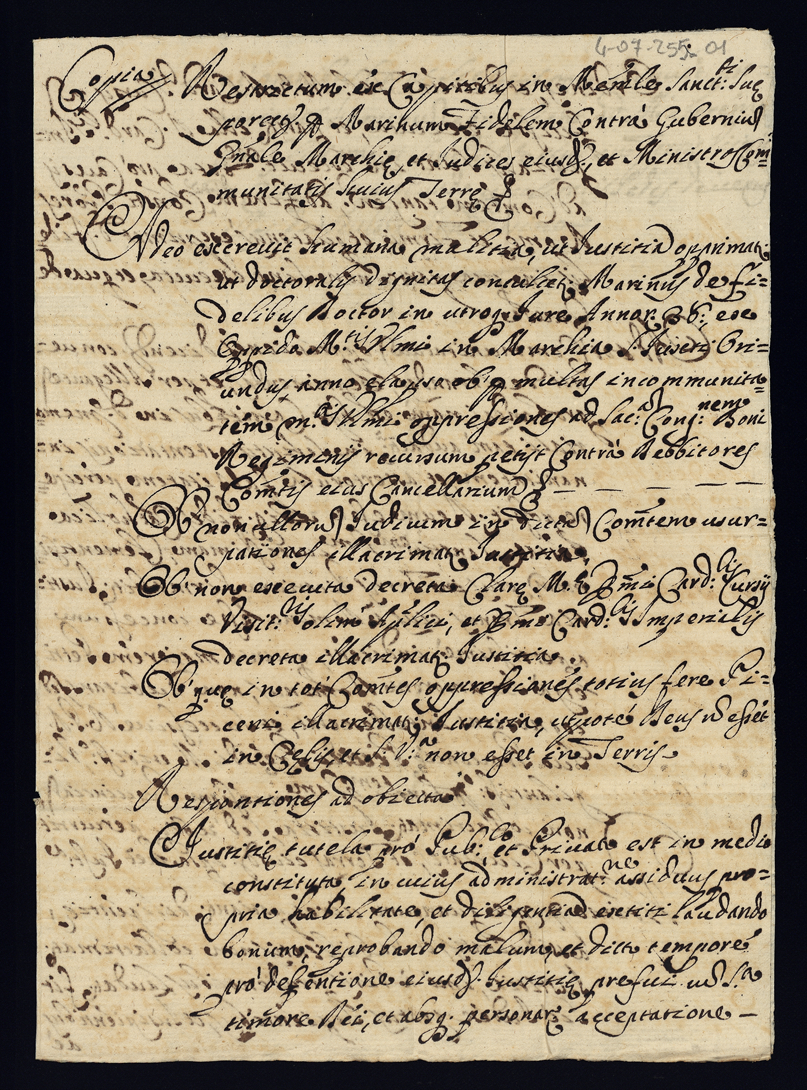 4-07-255-01
Copia Restrictum ex Capitibus in Mem:le Sanct:ti Suę
porrect. p Marinum Fidilem Contrà Guberniũ
Gn̄ale Marchię, et Iudices eiusd:, et Ministros Com̄
munitatis huius Terrę
Adeo excrevit humana malitia, ut Iustitia opprimat.
ut doctoralis dignitas conculcet. Marinus de fi=
delibus Doctor in utroq. Iure Annor. 38: ex
Oppido M:tis Ulmi in Marchia Piceni Ori=
undus anno elapso ob p multas in communita=
tem M:tis Ulmi oppressiones ad Sac:am Cong:nem Boni
Regiminis recursum petijt Contrà Debbitores
Com̄tis eius Cancellarium
Ob nonnullorũ Iudicum in dictã Com̄tem usur=
pationes illacrimat. Iustitia.
Ob non execuita decreta Clarę M:ę Em̄i Card:lis Cursij
Visit:ris olim Aplici, et Em̄i Card:lis Imperialis
decreta illacrimat. Iustitia
Ob quę in tot Com̄tes oppressiones totius fere Pi=
ceni illacrimat. Iustitia, ut poté Deus ñ esset
in Cęlis, et non esset in Terris
Responsiones ad obiecta
Iustitię tutela prò Pub:co, et Privato est in medio
constituta, in cuius administrat:ne assiduus pro=
pria habilitate, et diligentia extiti laudando
bonum, reprobando malum, et dicto tempore
prò defentione eiusd. Iustitię prefui
timore Dei, et absq. personar. acceptatione –